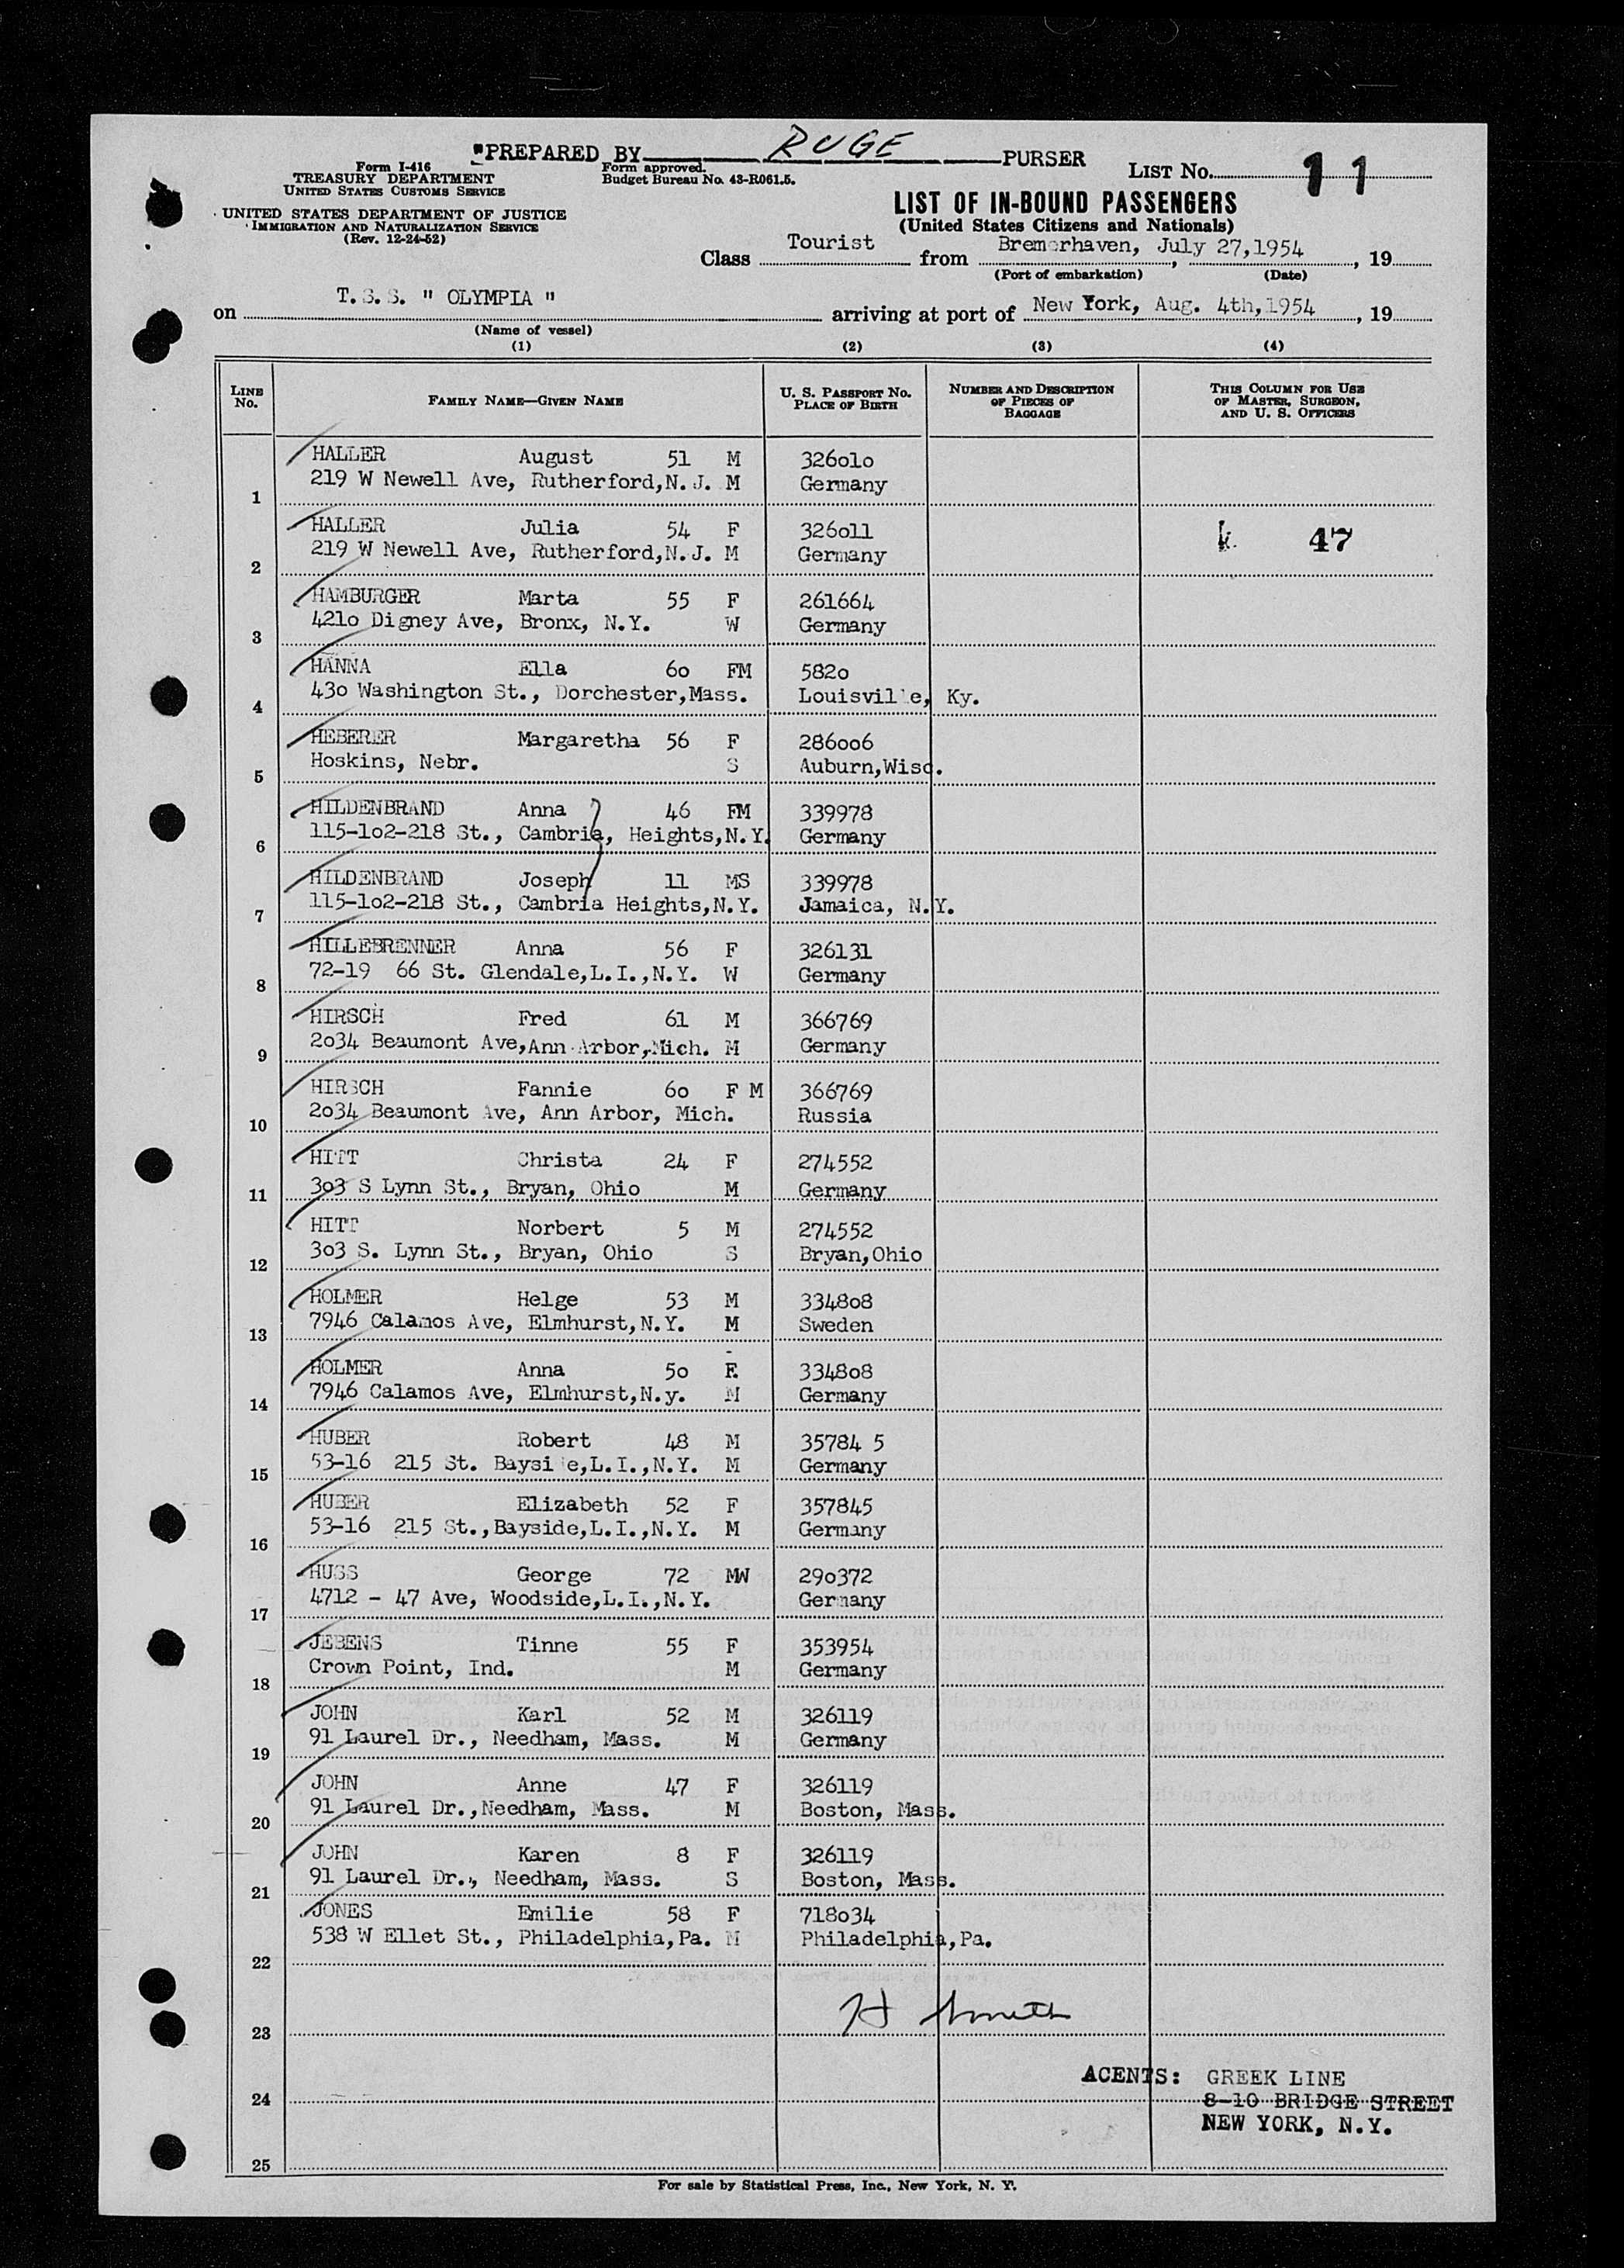 "PREPARED BY RUGE PURSER
Form I-416
TREASURY DEPARTMENT
UNITED STATES CUSTOMS SERVICE
Form approved.
Budget Bureau No. 43-R061.5.
LIST No. 11
UNITED STATES DEPARTMENT OF JUSTICE
IMMIGRATION AND NATURALIZATION SERVICE
(Rev. 12-24-52)
LIST OF IN-BOUND PASSENGERS
(United States Citizens and Nationals)
Class Tourist from Bremerhaven, July 27,1954, 19
(Port of embarkation) (Date)
on T.S.S. " OLYMPIA " arriving at port of New York, Aug. 4th,1954, 19
(Name of vessel)
(1) (2) (3) (4)
LINE No. FAMILY NAME—GIVEN NAME U. S. PASSPORT NO. PLACE OF BIRTH NUMBER AND DESCRIPTION OF PIECES OF BAGGAGE THIS COLUMN FOR USE OF MASTER, SURGEON, AND U. S. OFFICERS
HALLER August 51 M 326olo
219 W Newell Ave, Rutherford,N.J. M Germany
1
HALLER Julia 54 F 326oll
219 W Newell Ave, Rutherford,N.J. M Germany
2 47
HAMBURGER Marta 55 F 261664
421o Digney Ave, Bronx, N.Y. W Germany
3
HANNA Ella 6o FM 582o
43o Washington St., Dorchester,Mass. Louisville, Ky.
4
HEBERER Margaretha 56 F 286oo6
Hoskins, Nebr. S Auburn,Wisc.
5
HILDENBRAND Anna 46 FM 339978
115-1o2-218 St., Cambria, Heights,N.Y. Germany
6
HILDENBRAND Joseph 11 MS 339978
115-1o2-218 St., Cambria Heights,N.Y. Jamaica, N.Y.
7
HILLEBRENNER Anna 56 F 326131
72-19 66 St. Glendale,L.I.,N.Y. W Germany
8
HIRSCH Fred 61 M 366769
2o34 Beaumont Ave,Ann Arbor,Mich. M Germany
9
HIRSCH Fannie 6o F M 366769
2o34 Beaumont Ave, Ann Arbor, Mich. Russia
10
HITT Christa 24 F 274552
3o3 S Lynn St., Bryan, Ohio M Germany
11
HITT Norbert 5 M 274552
3o3 S. Lynn St., Bryan, Ohio S Bryan,Ohio
12
HOLMER Helge 53 M 3348o8
7946 Calamos Ave, Elmhurst,N.Y. M Sweden
13
HOLMER Anna 5o F 3348o8
7946 Calamos Ave, Elmhurst,N.y. M Germany
14
HUBER Robert 48 M 35784 5
53-16 215 St. Bayside,L.I.,N.Y. M Germany
15
HUBER Elizabeth 52 F 357845
53-16 215 St.,Bayside,L.I.,N.Y. M Germany
16
HUSS George 72 MW 29o372
4712 - 47 Ave, Woodside,L.I.,N.Y. Germany
17
JEBENS Tinne 55 F 353954
Crown Point, Ind. M Germany
18
JOHN Karl 52 M 326119
91 Laurel Dr., Needham, Mass. M Germany
19
JOHN Anne 47 F 326119
91 Laurel Dr.,Needham, Mass. M Boston, Mass.
20
JOHN Karen 8 F 326119
91 Laurel Dr., Needham, Mass. S Boston, Mass.
21
JONES Emilie 58 F 718o34
538 W Ellet St., Philadelphia,Pa. M Philadelphia,Pa.
22
H Smith
23
ACENTS: GREEK LINE
24 8-10 BRIDGE STREET
NEW YORK, N.Y.
25
For sale by Statistical Press, Inc., New York, N. Y.